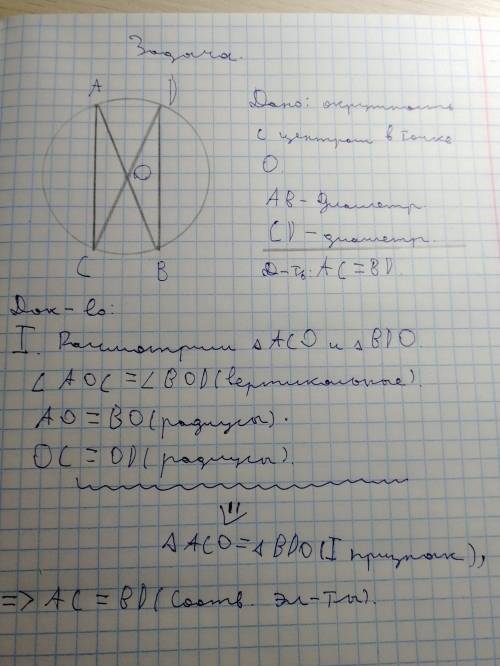 Задача.
A D
Дано: окружность
с центром в точке
O
O.
AB - диаметр.
CD - диаметр.
C B
Д-ть: AC = BD.
Док-во:
I. Рассмотрим △ACO и △BDO.
∠AOC = ∠BOD (вертикальные).
AO = BO (радиусы).
OC = OD (радиусы).
△ACO = △BDO (I признак),
=> AC = BD (соотв. эл-ты).